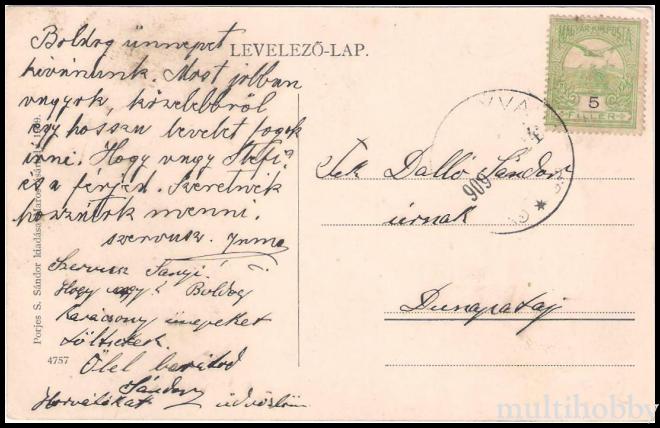 LEVELEZŐ-LAP.
Boldog ünnepet
kívánunk. Most jobban
vagyok, közelebbről
egy hosszu levelet fogok
irni. Hogy vagy Stefi?
és a férjed. Szeretnék
hozzátok menni.
szervusz. Irma
Szervusz Fanyi!
Hogy vagy? Boldog
karácsony ünepeket
töltsetek
Ölel barátod
Sándor
Horvátékat üdvözlöm
Porjes S. Sándor kiadása
4757
MAGYAR KIR. POSTA
5
FILLER
909
Tek Dalló Sándor
úrnak
Dunapataj
multihobby